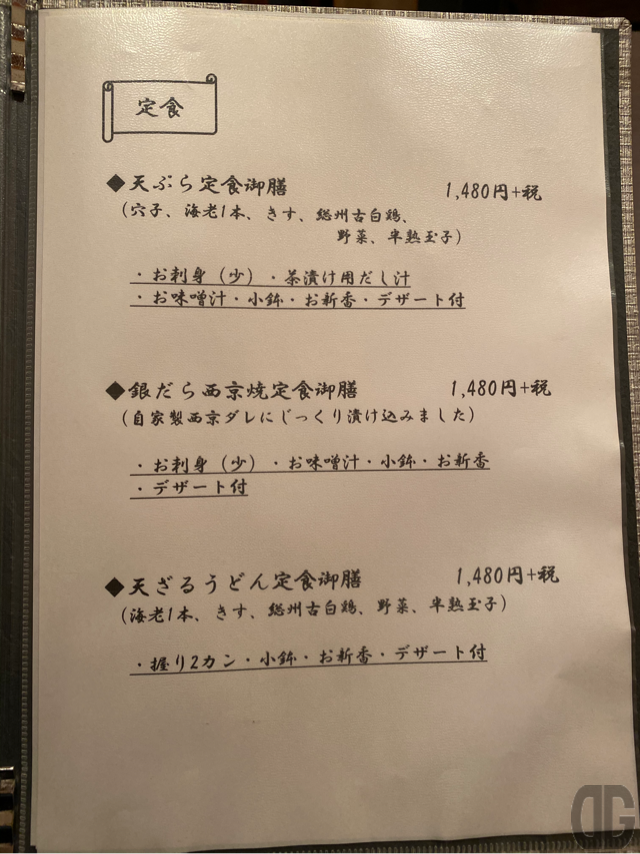 定食
◆天ぷら定食御膳 1,480円+税
(穴子、海老1本、きす、総州古白鶏、
野菜、半熟玉子)
・お刺身(少)・茶漬け用だし汁
・お味噌汁・小鉢・お新香・デザート付
◆銀だら西京焼定食御膳 1,480円+税
(自家製西京ダレにじっくり漬け込みました)
・お刺身(少)・お味噌汁・小鉢・お新香
・デザート付
◆天ざるうどん定食御膳 1,480円+税
(海老1本、きす、総州古白鶏、野菜、半熟玉子)
・握り2カン・小鉢・お新香・デザート付
DG